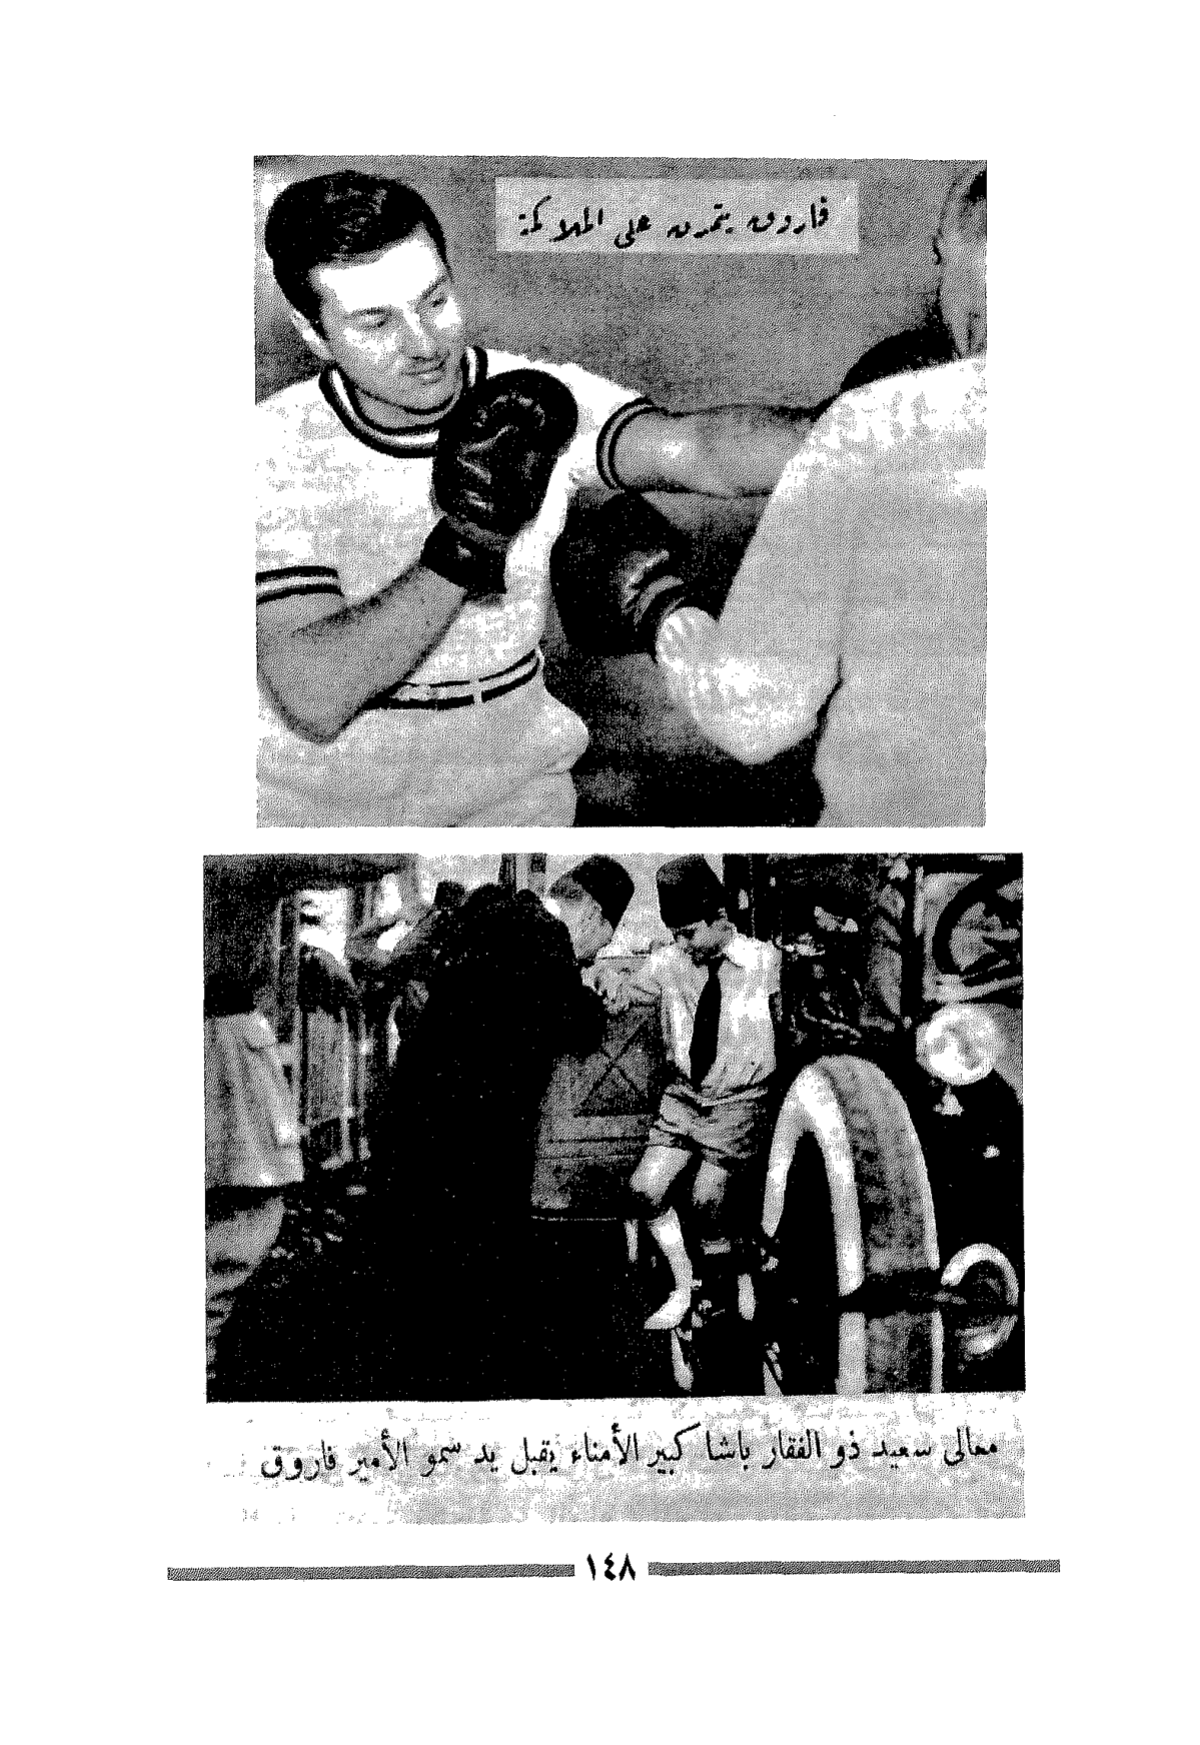 فاروق يتمرن على الملاكمة
معالى سعيد ذو الفقار باشا كبير الأمناء يقبل يد سمو الأمير فاروق
١٤٨